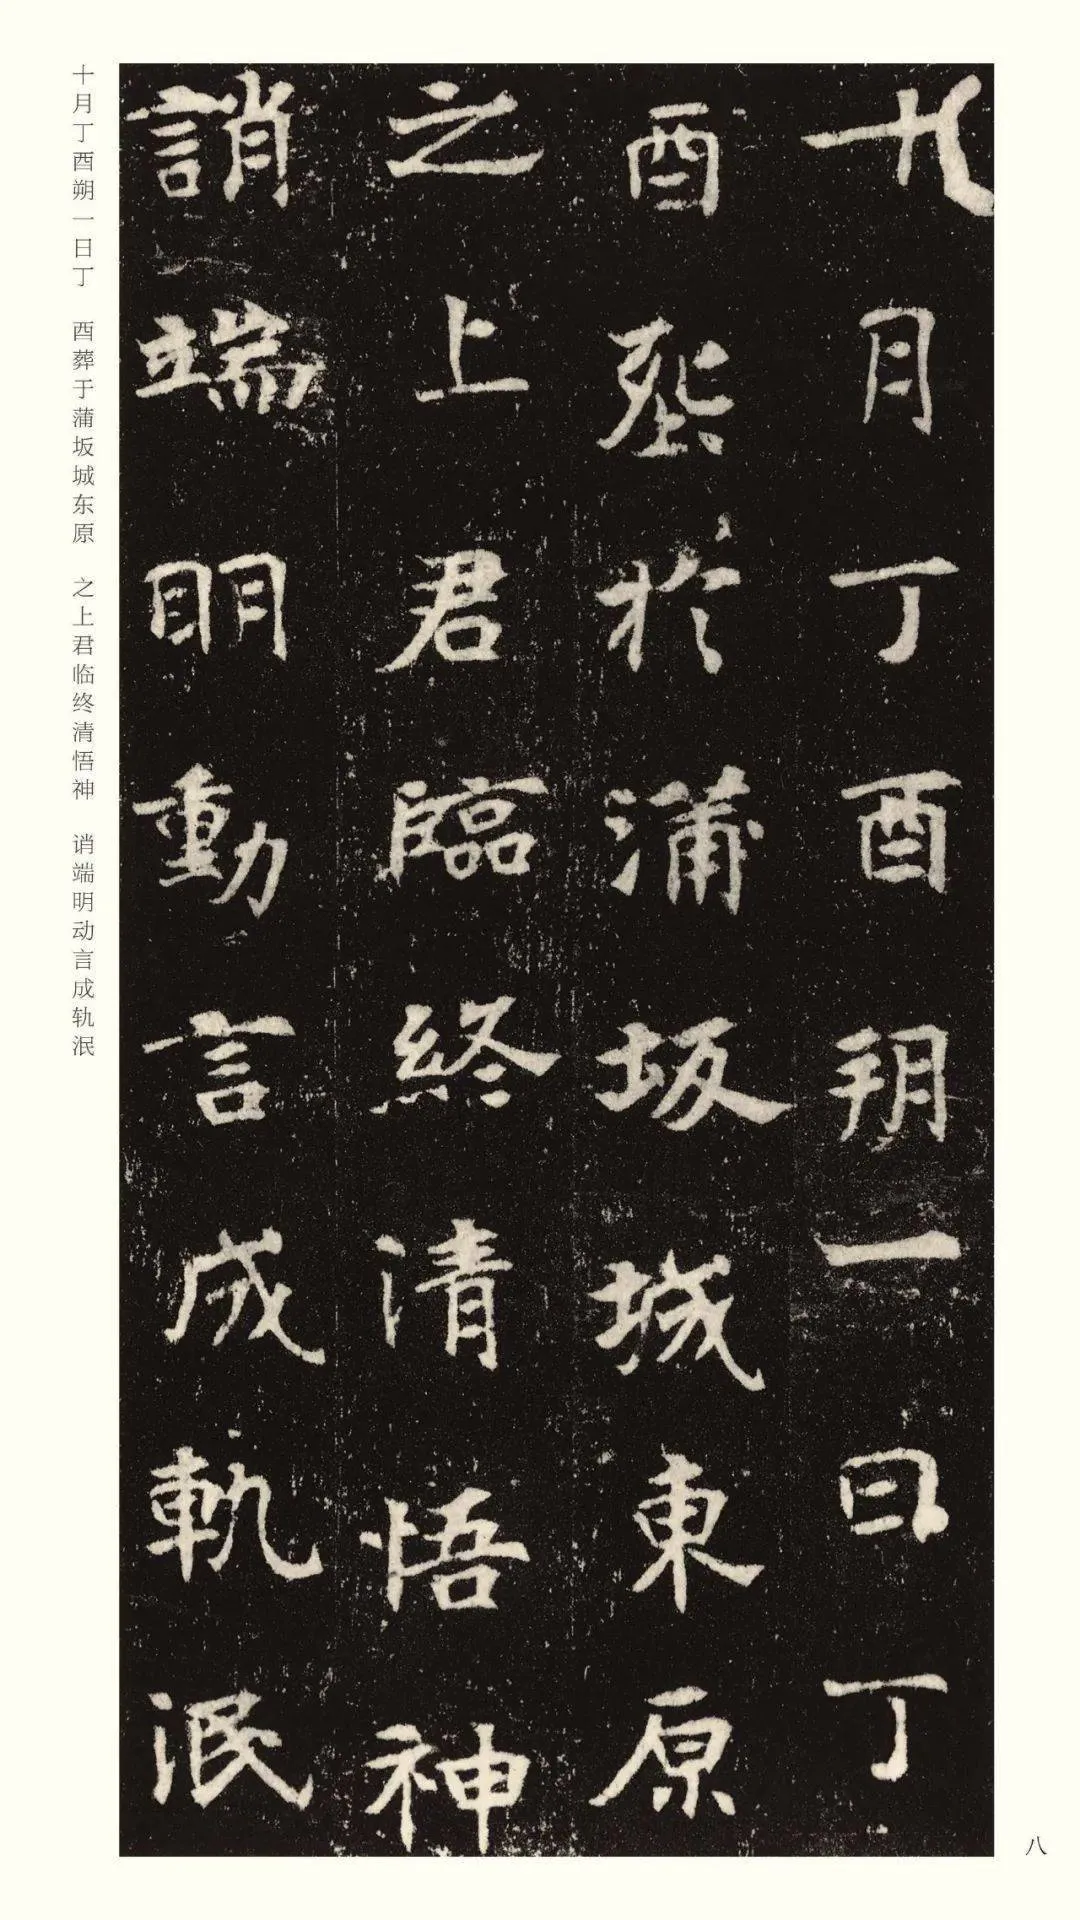 十月丁酉朔一日丁
酉葬於蒲坂城東原
之上君臨終清悟神
誚端明動言成軌泯
十月丁酉朔一日丁 酉葬于蒲坂城东原 之上君临终清悟神 诮端明动言成轨泯
八